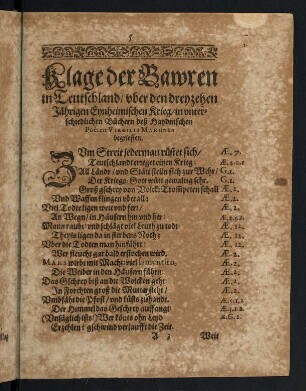 5
Klage der Bawren
in Teutschland / vber den dreyzehen
Jährigen Einheimischen Krieg / in vnter-
schiedlichen Büchern deß Haydnischen
Poeten VIRGILII MARONIS
begriffen.
ZVm Streit jederman rüstet sich / Æ. 7.
Teutschland erreget einen Krieg:
All Länd / vnd Stätt stelln sich zur Wehr / G. 1.
Der Kriegs Gott wüt gewaltig sehr. G. 1.
Groß gschrey von Volck: Trompeten schall Æ. 2.
Vnd Waffen klingen vberall: Æ. 2.
Viel Todte ligen weit vnd ferr / Æ. 2.
An Wegn / in Häusern hin vnd her: 
Mann raubt / vnd schlägt viel Leut zu todt Æ. 2.
Theyls ligen da in sterbens Noth: Æ. 2.
Vber die Todten man hinführt: Æ. 2.
Wer fleucht gar bald erstochen wird. Æ. 2.
MARS wirbt mit Macht: viel
Die Weiber in den Häusern Æ. 2.
Das Geschrey biß an die Wolcken geht: Æ. 2.
In Forchten groß die Mutter steht / Æ. 2.
Vmbfäht die Pfost / vnd küsts zuhandt.
Der Himmel das Geschrey auffangt /
(Vnsäglich ists) Wer köntt ohn Leyd
Erzehlen: gschwind verlaufft die Zeit.
Weit